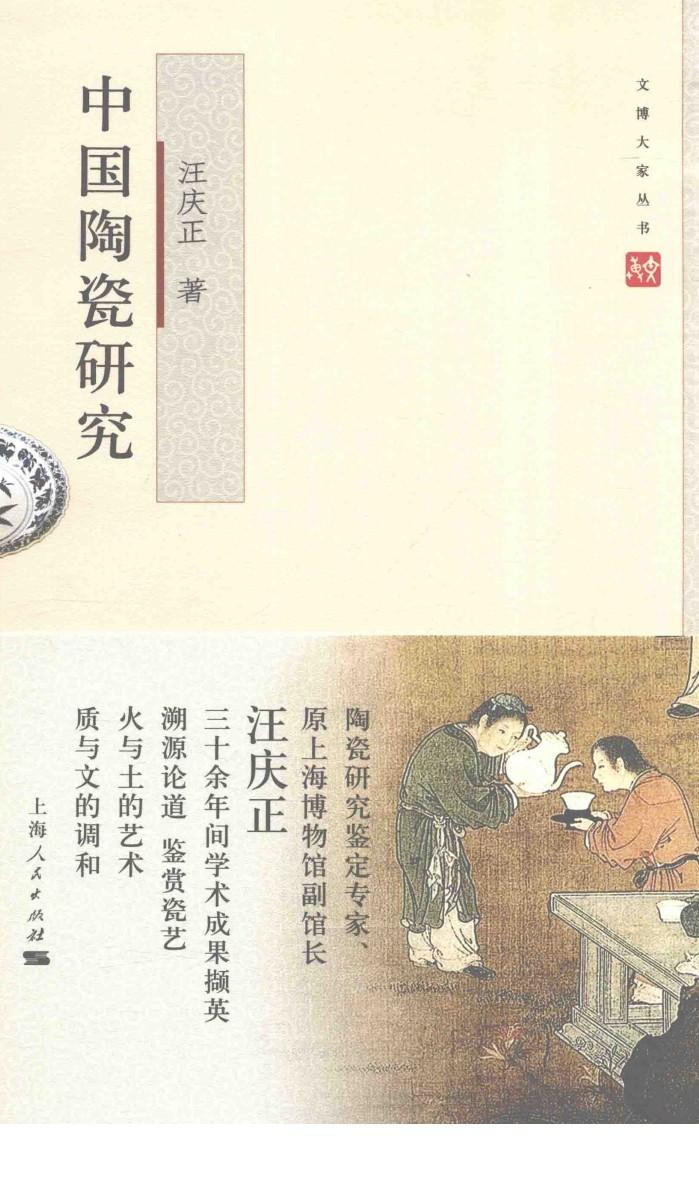 文博大家丛书
文博
汪庆正 著
中国陶瓷研究
陶瓷研究鉴定专家、
原上海博物馆副馆长
汪庆正
三十余年间学术成果撷英
溯源论道 鉴赏瓷艺
火与土的艺术
质与文的调和
上海人民出版社